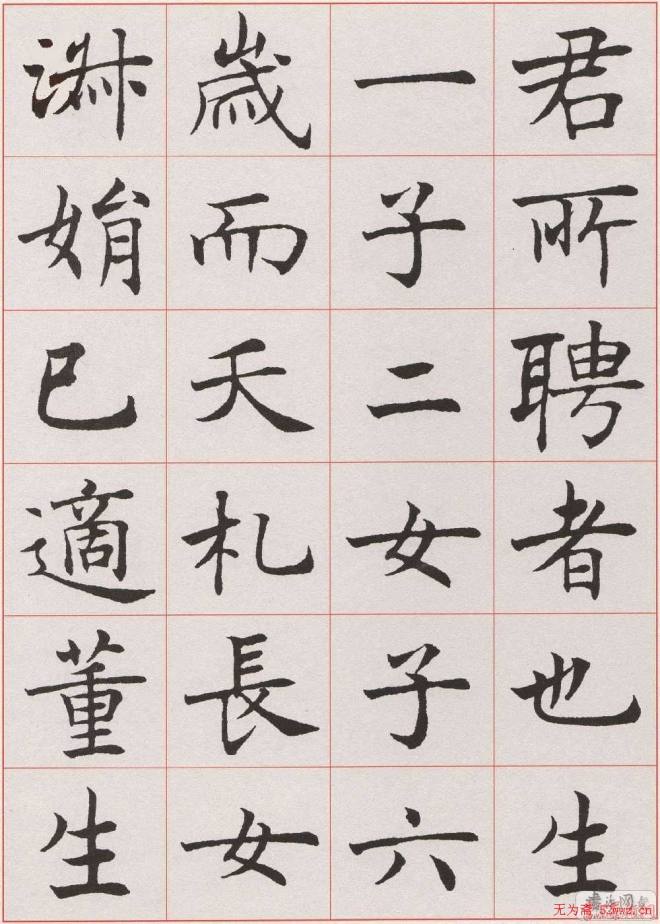 君所聘者也生
一子二女子六
歲而夭札長女
淋娟已適董生
无为斋.53wwz.cn